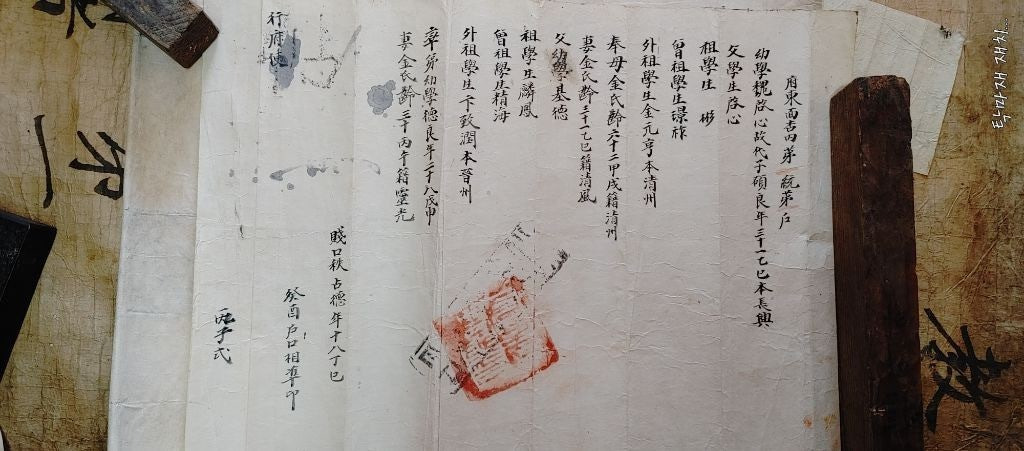 府東面舌內第 統第 戶
幼學魏啓心故代子碩良年三十一乙巳本長興
父學生啓心
祖學生 彬
曾祖學生璟祚
外祖學生金元亨本淸州
奉母金氏齡六十二甲戌籍淸州
妻金氏齡三十一乙巳籍淸風
父幼學基德
祖學生麟鳳
曾祖學生精海
外祖學生卞致潤本晉州
率弟幼學德良年二十八戊申
妻金氏齡三十丙午籍靈光
賤口秩占德年十八丁巳
癸酉戶口相準印
丙子式
行府使
탁마재 재치..